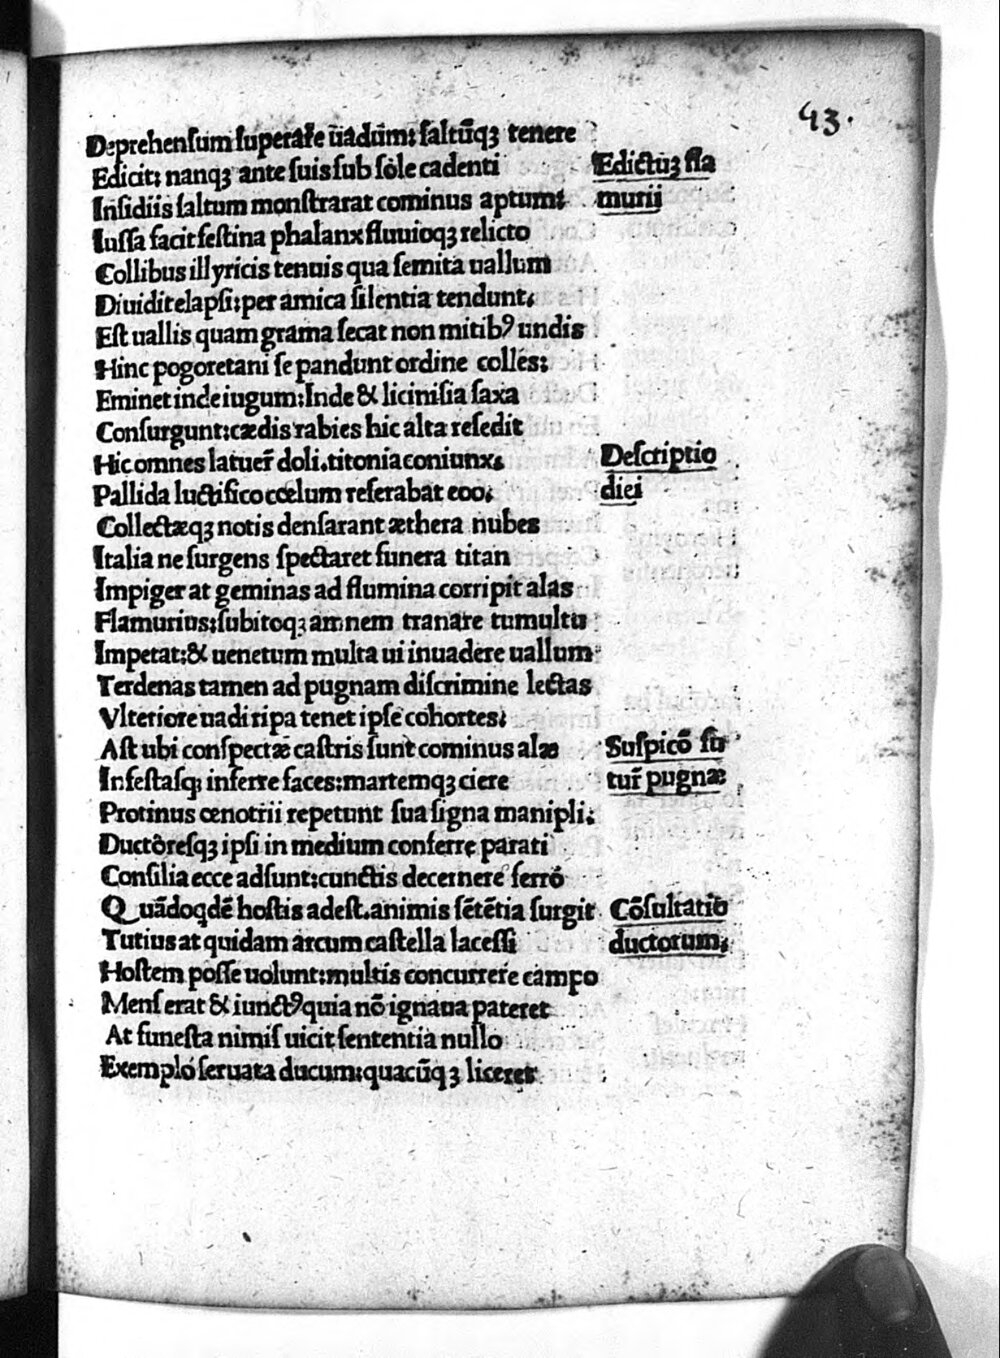 43.
Deprehensum superare ūadum: saltūqꝫ tenere
Edicit: nanqꝫ ante suis sub sole cadenti
Edictuꝫ fla
Insidiis saltum monstrarat cominus aptum:
murii
Iussa facit festina phalanx fluuioqꝫ relicto
Collibus illyricis tenuis qua semita uallum
Diuidit elapsi: per amica silentia tendunt.
Est uallis quam grama secat non mitibꝰ undis
Hinc pogoretani se pandunt ordine colles:
Eminet inde iugum: Inde & licinisia saxa
Consurgunt: cædis rabies hic alta resedit
Hic omnes latuer̄ doli. titonia coniunx.
Descriptio
Pallida luctifico cœlum referabat eoo.
diei
Collectæqꝫ notis densarant æthera nubes
Italia ne surgens spectaret funera titan
Impiger at geminas ad flumina corripit alas
Flamurius: subitoqꝫ amnem tranare tumultu
Impetat: & uenetum multa ui inuadere uallum
Terdenas tamen ad pugnam discrimine lectas
Vlteriore uadi ripa tenet ipse cohortes:
Ast ubi conspectæ castris sunt cominus alæ
Suspicō fu
Infestasqꝫ inferre faces: martemqꝫ ciere
tur̄ pugnæ
Protinus œnotrii repetunt sua signa manipli:
Ductoresqꝫ ipsi in medium conferre parati
Consilia ecce adsunt: cunctis decernere ferro
Quādoqdē hostis adest. animis sētētia surgit
Cōsultatio
Tutius at quidam arcum castella lacessi
ductorum.
Hostem posse uolunt: multis concurrere campo
Mens erat & iunctꝰ quia nō ignaua pateret
At funesta nimis uicit sententia nullo
Exemplo seruata ducum: quacūqꝫ liceret